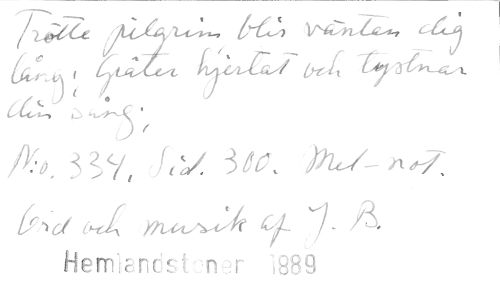 Trötte pilgrim blir väntan dig
lång; Gråter hjertat och tystnar
din sång;
N:o. 334, Sid. 300. Mel-not.
Ord och musik af J. B.
Hemlandstoner 1889